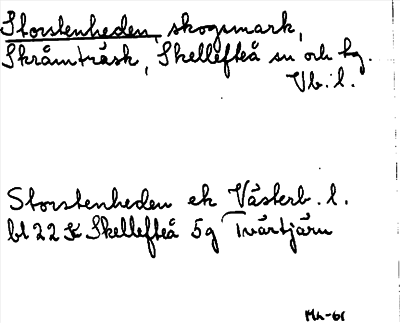 Storstenheden, skogsmark,
Skråmträsk, Skellefteå sn och kg.
Vb. l.
Storstenheden ek Västerb. l.
bl 22 K Skellefteå 5g Tvärtjärn
Mh-61